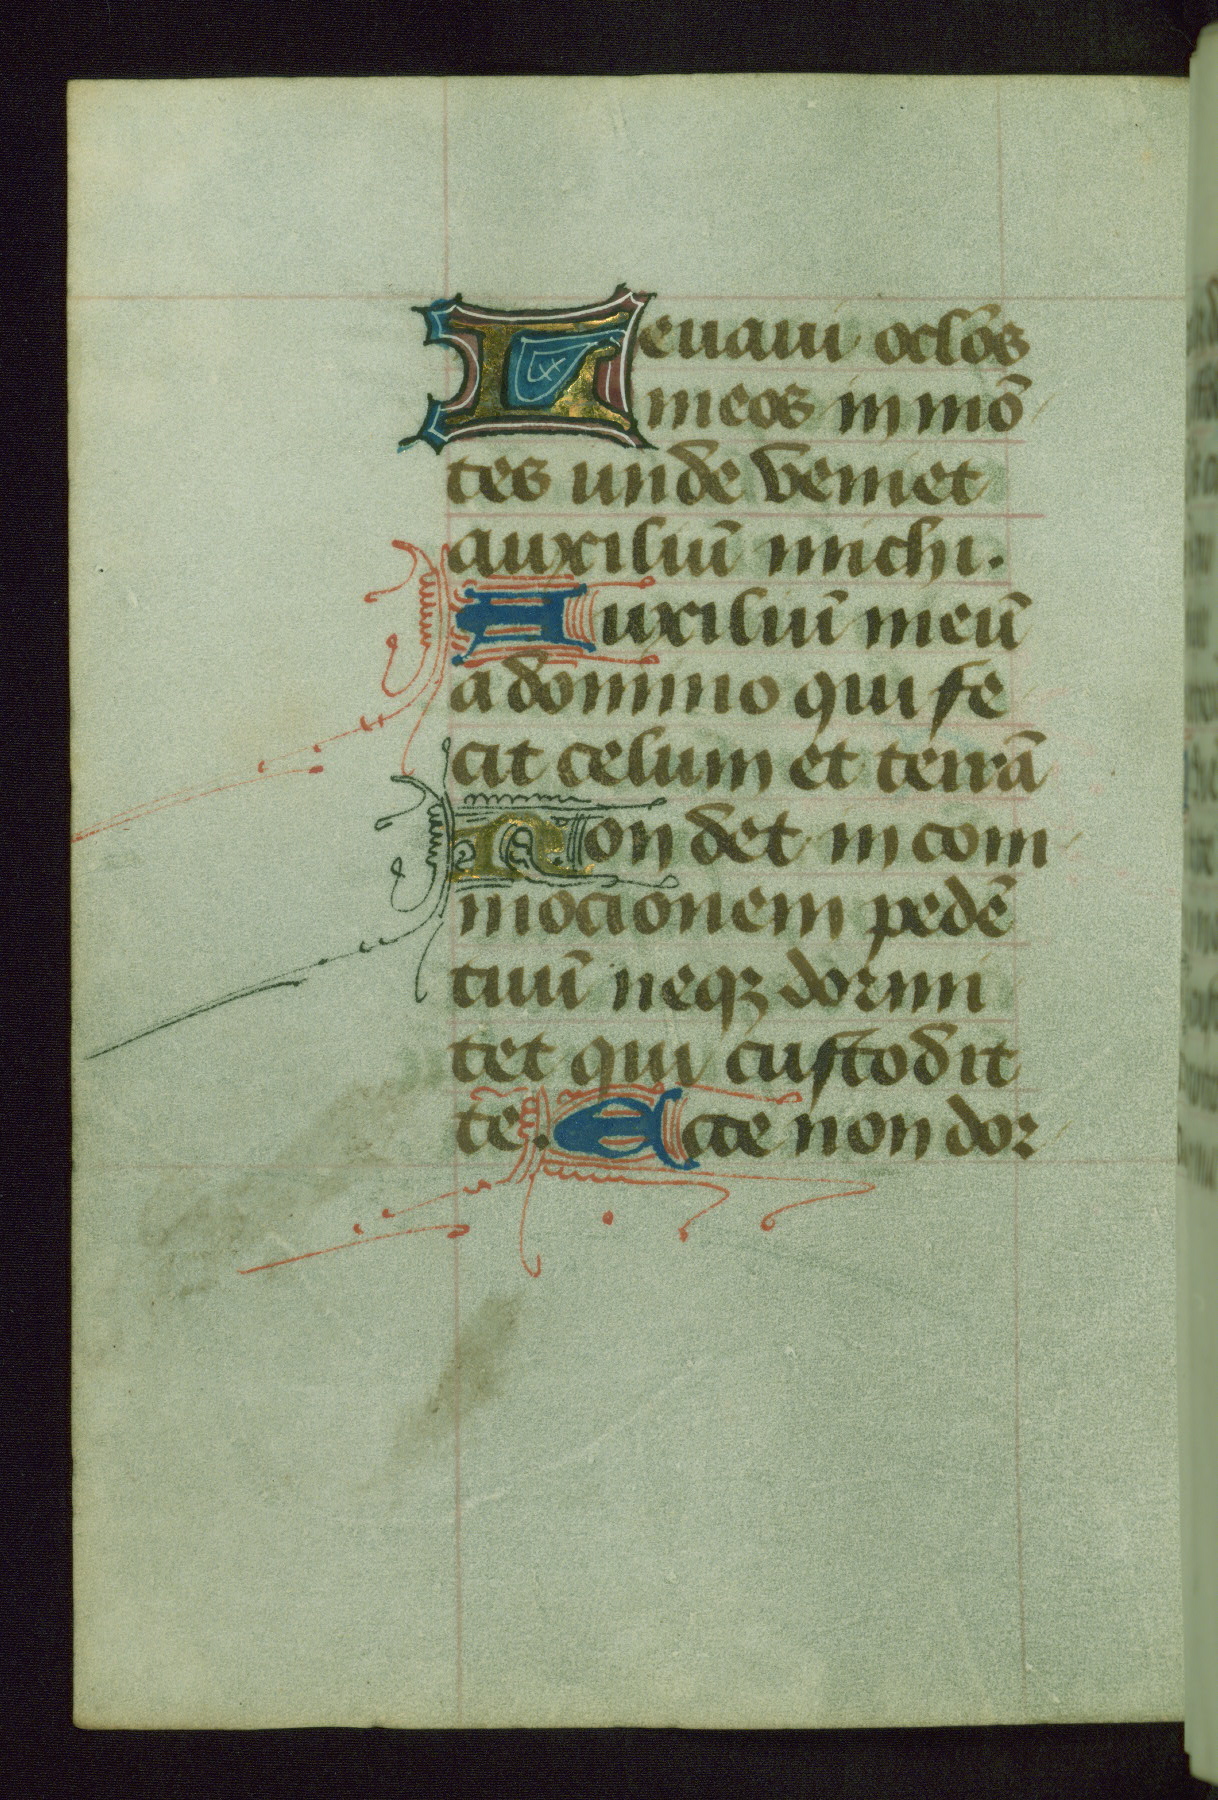 Leuaui oclōs
meos in mō
tes unde veniet
auxiliū michi.
Auxiliū meū
a domino qui fe
cit celum et terrā
Non det in com
mocionem pedē
tuū neqȝ dormi
tet qui custodit
te. Ecce non dor